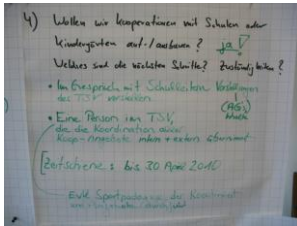 4) Wollen wir Kooperationen mit Schulen oder
Kindergärten auf-/ausbauen? ja!
Welches sind die nächsten Schritte? Zuständigkeiten?
• Im Gespräch mit Schulleitern Vorstellungen
des TSV
(AG's
• Eine Person im TSV,
die die Koordination
Koop-Angebote intern + extern übernimmt
Zeitschiene: bis 30 April 2010
Evtl Sportpädagoge, der koordiniert